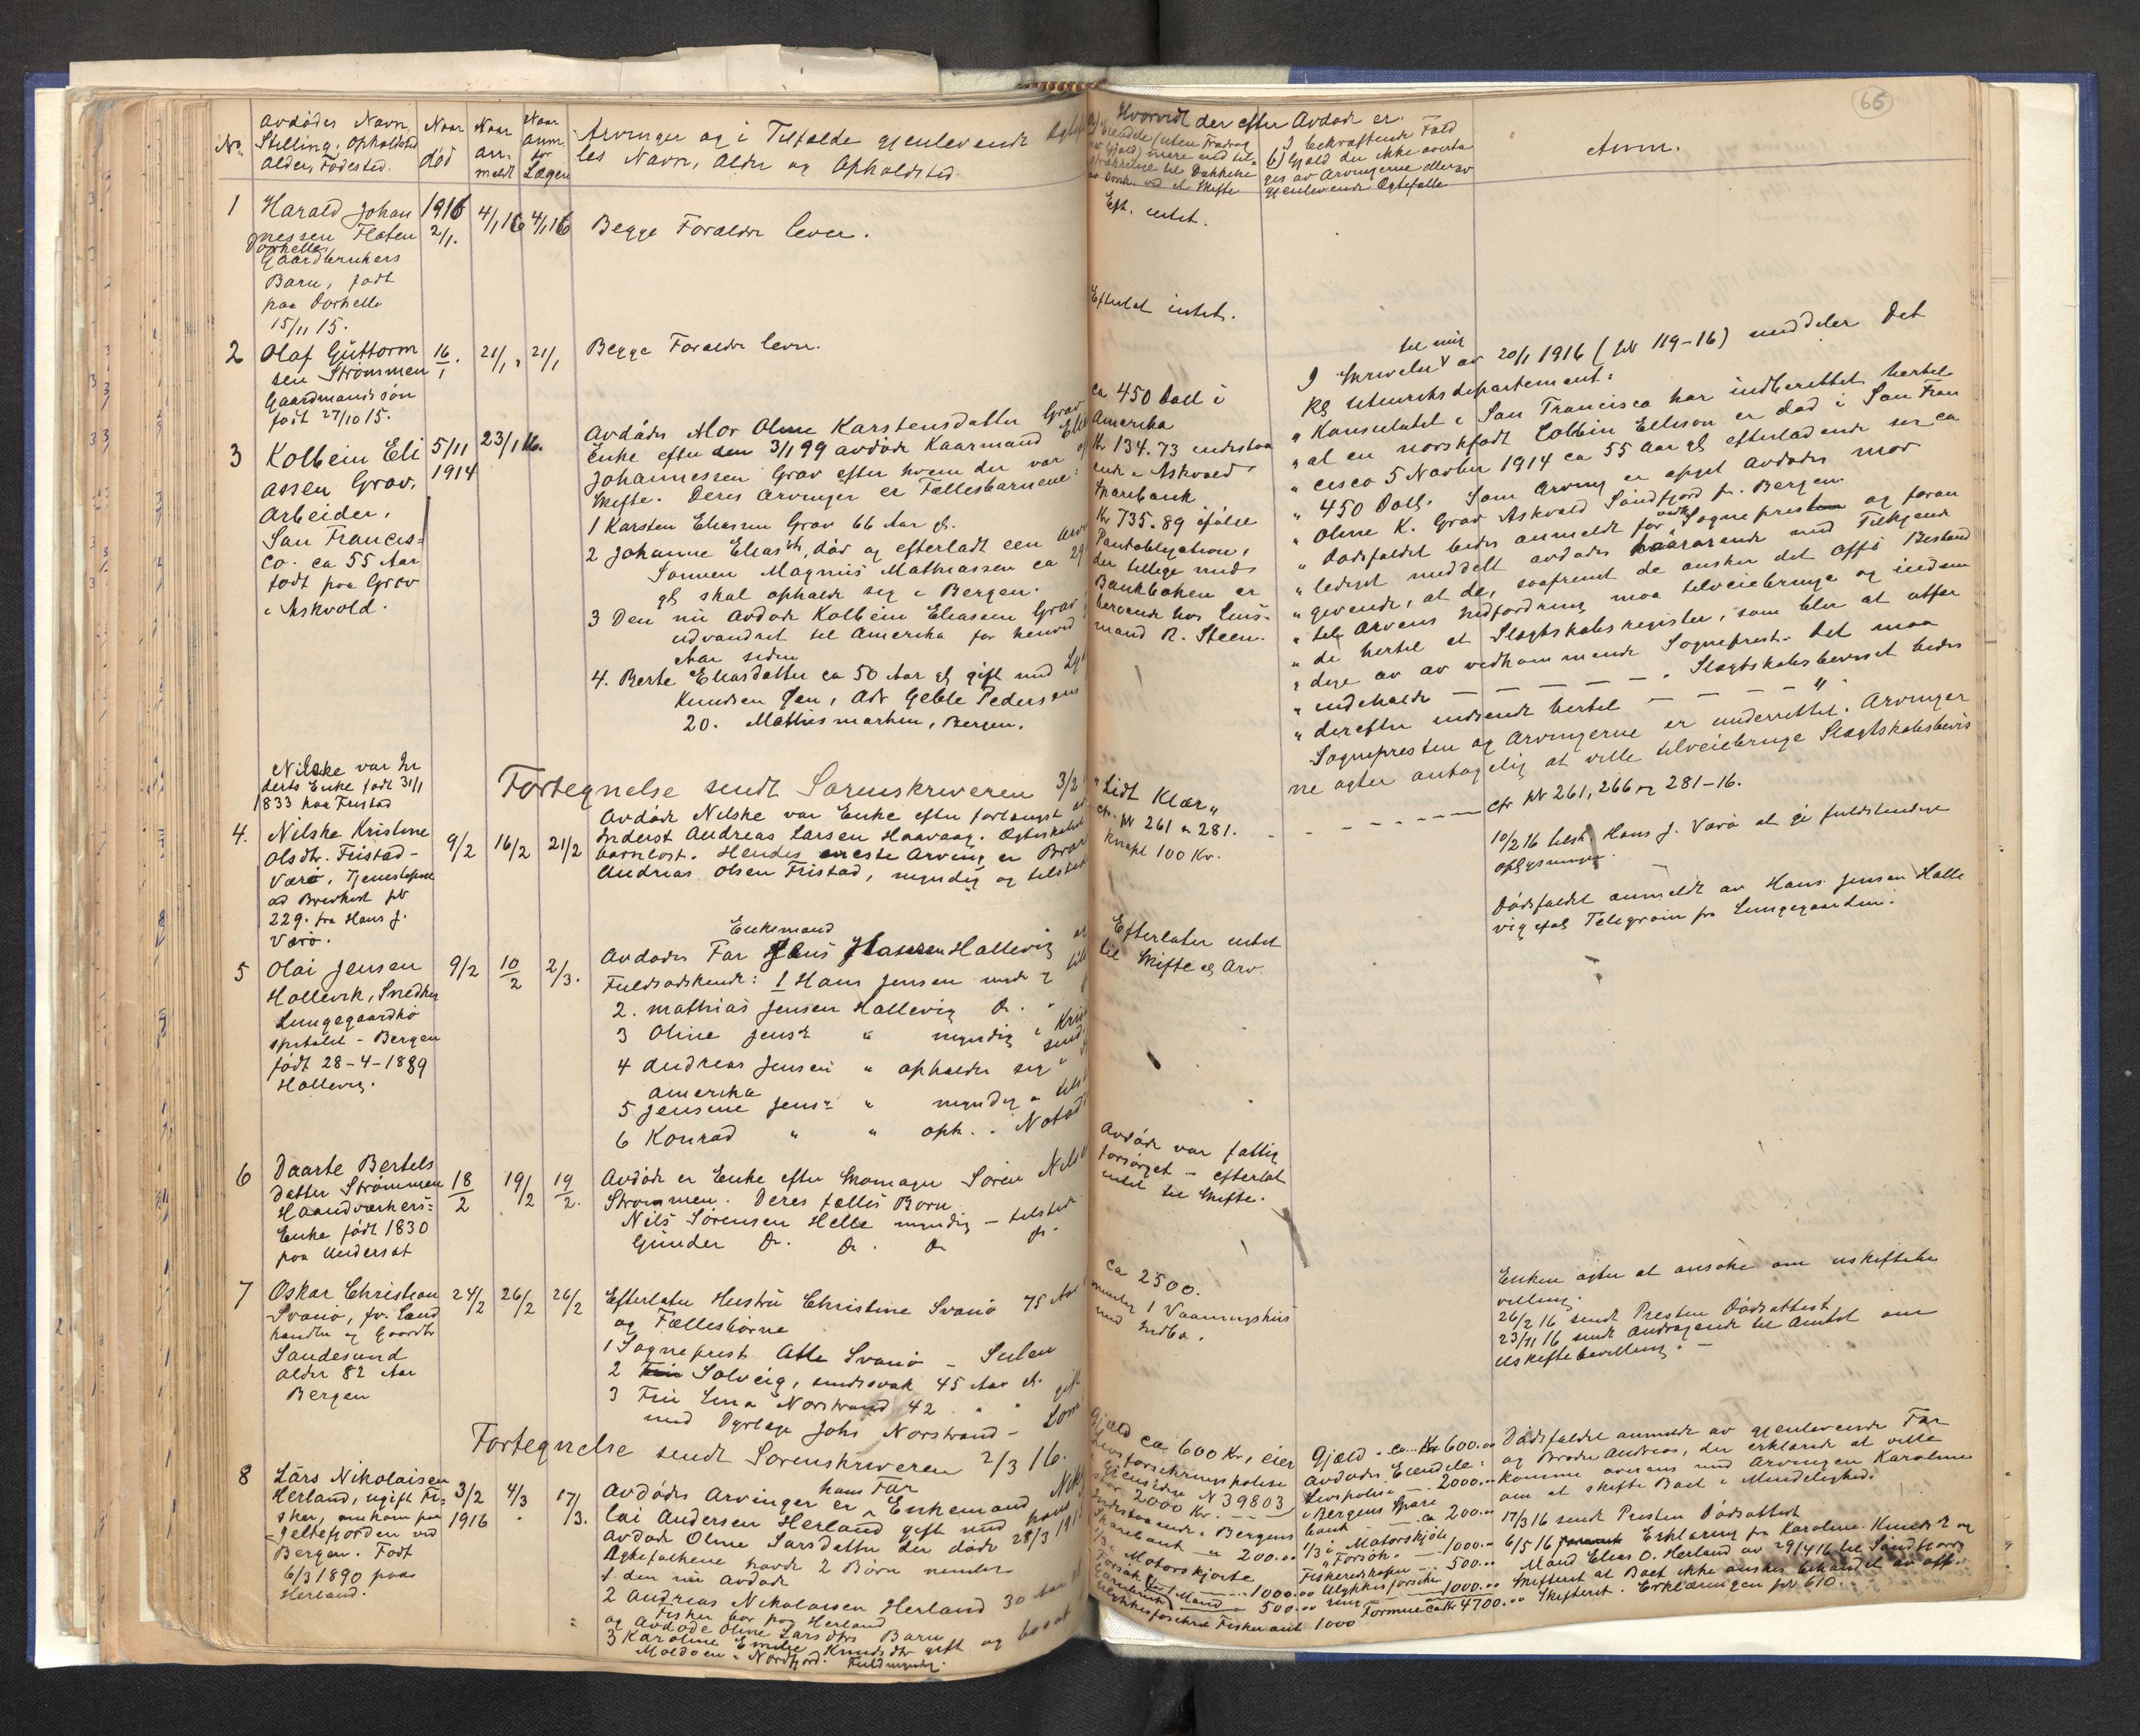 65
No.
Avdødes Navn,
Stilling, Opholdsted
Alder, Fødested.
Naar
død
Naar
an-
meldt
Naar
anm.
for
Lægen
Arvinger og i Tilfælde gjenlevende
les Navn, Alder og Opholdsted
Hvorvidt der efter Avdøde er
I bekræftende Fald
b) Gjæld der ikke overta
ges av Arvingerne eller av
gjenlevende Ægtefælle
Anm.
1
Harald Johan
nessen Flaten
Gaardbrukers
Barn, født
paa Dorhelle
15/11 15.
1916
2/1.
4/1 16
4/1 16
Begge Forældre lever.
Eft. intet.
2
Olaf Guttorm
sen Strømmen
Gaardmandssøn
født 27/10 15.
16/1.
21/1
21/1
Begge Forældre lever.
Efterlat intet.
3
Kolbein Eli
assen Grov,
Arbeider,
San Francis=
co. ca 55 Aar
født paa Grov
i Askvold.
5/11
1914
23/1 16.
Avdødes Mor Oline Karstensdatter Grov
Enke efter den 3/1 99 avdøde Kaarmand
Johannessen Grov efter hvem der var
Skifte. Deres Arvinger er Fællesbarnene:
1 Karsten Eliassen Grov 66 Aar gl.
2 Johanne Eliasdtr, død og efterladt een
Sønnen Magnus Mathiassen ca 29
gl skal opholde seg i Bergen.
3 Den nu Avdøde Kolbein Eliassen Grov
udvandret til Amerika for henved
Aar siden
4. Berte Eliasdatter ca 50 Aar gl gift med
Knudsen Øen, Adr Geble Pedersens
20. Møhlesmarken, Bergen.
ca 450 Doll i
Amerika
Kr 134.73 indestaa
ende i Askvold
Sparebank
Kr 735.89 ifølge
Pantobligation,
der tillige med
Bankboken er
beroende hos Lens-
mand R. Steen.
til mig
I Skrivelse av 20/1 1916 (jnr 119-16) meddeler Det
Kgl Utenriksdepartement:
" Konsulatet i San Francisco har indberettet hertil
" at en norskfødt Colbin Ellison er død i San Fran
" cisco 5 Novbr 1914 ca 55 Aar gl efterladende sig ca
" 450 Doll. Som Arving er opgit Avdødes Mor
" Oline K. Grov Askvold Søndfjord pr. Bergen.
" Dødsfaldet bedes anmeldt for vedk. Sogneprest og foran
" lediget meddelt avdødes paarørende med Tilkjende
" givende, at de, saafremt de ønsker det offs Bistand
" til Arvens Indfordring maa tilveiebringe og indsen
" de hertil et Slægtskabsregister, som blir at utfær
" dige av av vedkommende Sogneprest. Det maa
" indeholde — — — — —. Slægtskabsbeviset bedes
" derefter indsendt hertil — — — — "
Sognepresten og Arvingerne er underrettet. Arvinger
ne agter antagelig at ville tilveiebringe Slægtskabsbevis
cfr jnr 261, 266 og 281-16.
Fortegnelse sendt Sorenskriveren 3/2
Nilske var In
dersts Enke født 31/1
1833 paa Fristad
4.
Nilske Kristine
Olsdtr. Fristad-
Værø, Tjenestepike
ad Brevkort jnr
229. fra Hans J.
Værø.
9/2
16/2
21/2
Avdøde Nilske var Enke efter forlængst
Inderst Andreas Larsen Haavaag. Ægteskabet
barnløst. Hendes eneste Arving er Bror
Andreas Olsen Fristad, myndig og tilstede
"Lidt Klær"
cfr. jnr 261 & 281.
Knapt 100 Kr.
10/2 16 tilsk. Hans J. Værø at gi fuldstendige
oplysninger.
5
Olai Jensen
Hallevik, Snedker
Lungegaardho
spitalet - Bergen
født 28-4-1889
Hallevig.
9/2
10/2
2/3.
Enkemand
Avdødes Far Jens Hansen Hallevig
Fuldsødskende: 1 Hans Jensen
2. Mathias Jensen Hallevig Do. "
3 Oline Jensdtr " myndig i
4 Andreas Jensen " opholder seg i
Amerika
5 Jensine Jensdtr " myndig
6 Konrad " " oph. i
Efterlater intet
til Skifte gl Arv.
Dødsfaldet anmeldt av Hans Jensen Halle
vig ifølg Telegram fra Lungegaarden.
6
Daarte Bertels
datter Strømmen
Haandværkers=
Enke født 1830
paa Underset
18/2
19/2
19/2.
Avdøde er Enke efter Skomager Søren
Strømmen. Deres fælles Børn
Nils Sørensen Helle myndig - tilsted
Gunder Do. Do. Do Do.
Avdøde var fattig
forsørget - efterlat
intet til Skifte.
7
Oskar Christian
Svanø, fv. Land
handler og Gaardbr
Sandesund
alder 82 Aar
Bergen
24/2
26/2
26/2
Efterlater Hustru Christine Svanø 75 Aar
og Fællesbørne
1 Sogneprest Atle Svanø - Sulen
2 Solveig, sindssvak 45 Aar gl.
3 Fru Lina Norstrand 42 " "
med Dyrlæge Johs Norstrand -
ca 2500.
nemlig 1 Vaaningshus
med Indbo.
Enken agter at ansøke om uskiftebe
villing.
26/2 16 sendt Presten Dødsattest
23/11 16 sendt Andragende til Amtet om
Uskiftebevilling. -
Fortegnelse sendt Sorenskriveren 2/3 16.
8
Lars Nikolaisen
Herland, ugift Fi=
sker, omkom paa
Jeltefjorden ved
Bergen. Født
6/3 1890 paa
Herland.
3/2
1916
4/3
17/3.
hans Far
Avdødes Arvinger er Enkemand
lai Andersen Herland gift med
avdøde Oline Larsdatter der døde 28/3
Ægtefolkene havde 2 Børn nemlig
1 den nu Avdøde
2 Andreas Nikolaisen Herland 30 Aar
Fisker bor paa Herland
og Avdøde Oline Larsdtrs Barn
3 Karoline Emilie Knudsdtr gift og bosat
Moldøen i Nordfjord. Fuldmyndig.
Gjæld ca 600 Kr, eier
Livsforsikringspolise
N 39803
stor 2000 Kr.
Indestaaende i Bergens
Sparebank " 200.00
1/3 i Motorskjøite
Forsøk 1000.00
500.00
Fisker ant 1000
Gjæld ca Kr 600.00
Avdødes Eiendele:
Livspolise 2000.00
i Bergens Spare
bank ca 200.00
1/3 i Motorskjøite
"Forsøk" 1000.00
Fiskeredskaper 500.00
Ulykkesforsik
ring 1000.00
Formue ca Kr 4700.00
Dødsfaldet anmeldt av gjenlevende Far
og Broder Andreas, der erklærede at ville
komme overens med Arvingen Karoline
om at skifte Boet i Mindelighed.
17/3 16 sendt Presten Dødsattest
6/5 16 Erklæring fra Karoline Knudsdtr og
Mand Elias O. Herland av 29/4 16 til Søndfjords
Skifteret at Boet ikke ønskes behandlet av off.
Skifteret. Erklæringen jnr 610.